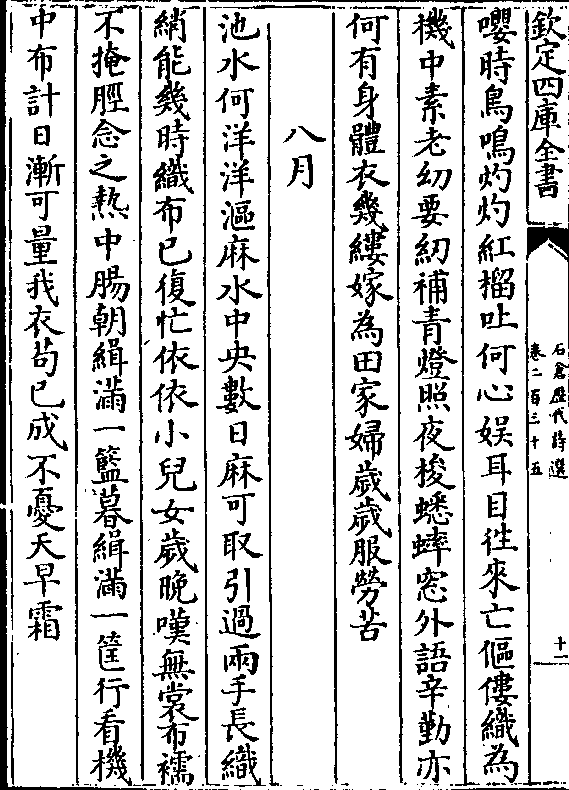 欽定四庫全書
石倉歷代詩選
卷二百三十五
十一
嚶時鳥鳴灼灼紅榴吐何心娱耳目徃來亡傴僂織為
機中素老幼要紉補青燈照夜梭蟋蟀窓外語辛勤亦
何有身體衣幾縷嫁為田家婦歲歲服勞苦
八月
池水何洋洋漚麻水中央數日麻可取引過兩手長織
綃能幾時織布已復忙依依小兒女歲晚嘆無裳布襦
不掩脛念之熱中腸朝緝滿一籃暮緝滿一筐行看機
中布計日漸可量我衣苟已成不憂天早霜